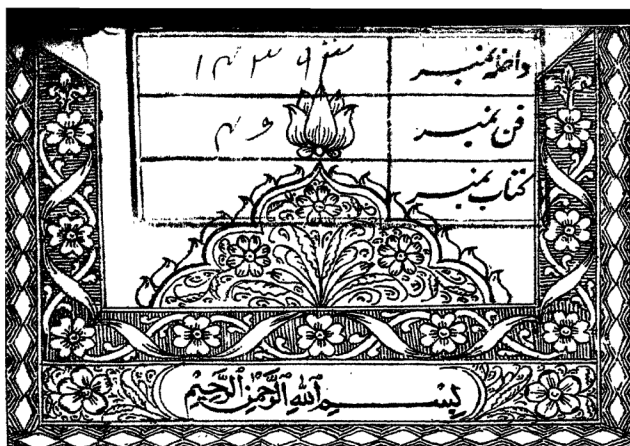 داخلہ نمبر
فن نمبر
کتاب نمبر
بسم اللہ الرحمن الرحیم